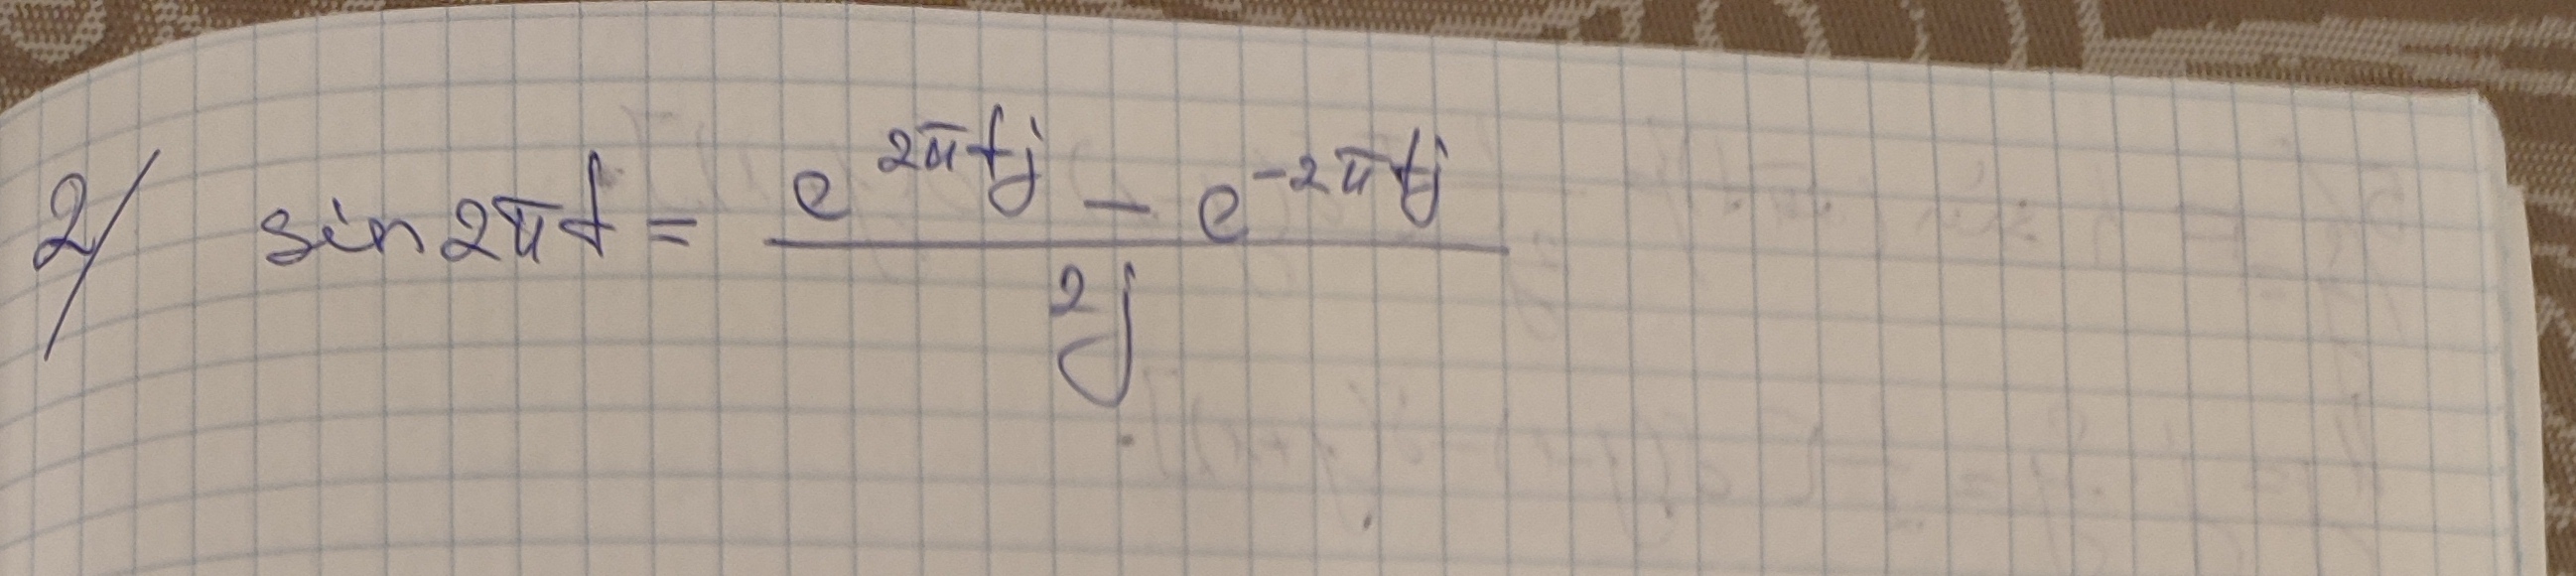 2/ sin2πt = (e^{2πtj} - e^{-2πtj}) / 2j